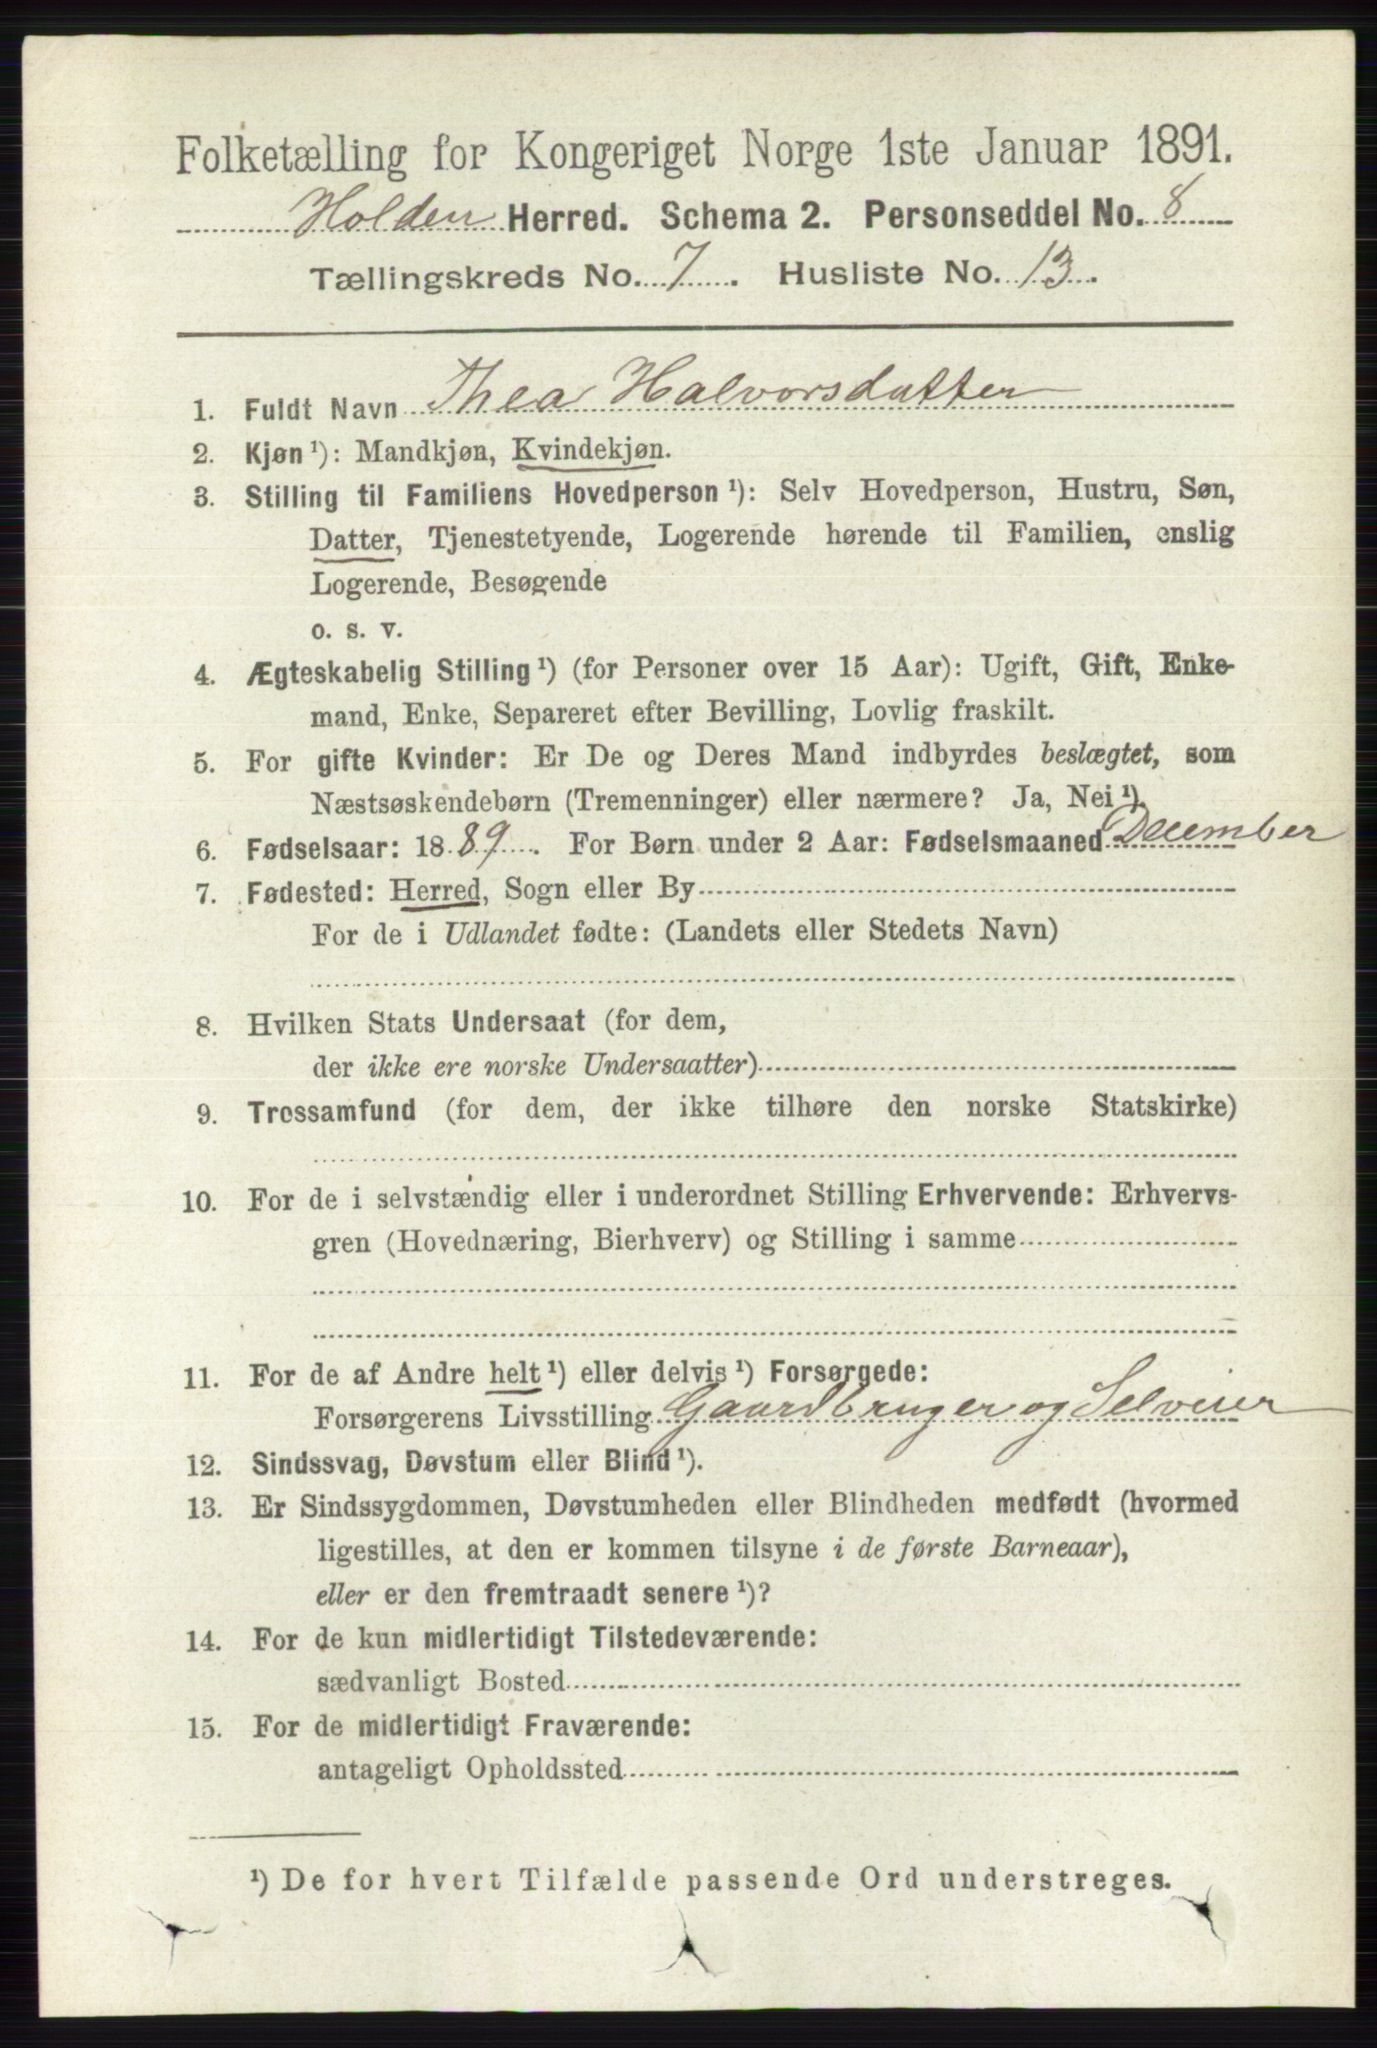 Folketælling for Kongeriget Norge 1ste Januar 1891.
Holden Herred. Schema 2. Personseddel No. 8
Tællingskreds No. 7. Husliste No. 13.
1. Fuldt Navn Thea Halvorsdatter
2. Kjøn ¹): Mandkjøn, Kvindekjøn.
3. Stilling til Familiens Hovedperson ¹): Selv Hovedperson, Hustru, Søn,
Datter, Tjenestetyende, Logerende hørende til Familien, enslig
Logerende, Besøgende
o. s. v.
4. Ægteskabelig Stilling ¹) (for Personer over 15 Aar): Ugift, Gift, Enke-
mand, Enke, Separeret efter Bevilling, Lovlig fraskilt.
5. For gifte Kvinder: Er De og Deres Mand indbyrdes beslægtet, som
Næstsøskendebørn (Tremenninger) eller nærmere? Ja, Nei ¹).
6. Fødselsaar: 1889. For Børn under 2 Aar: Fødselsmaaned December
7. Fødested: Herred, Sogn eller By
For de i Udlandet fødte: (Landets eller Stedets Navn)
8. Hvilken Stats Undersaat (for dem,
der ikke ere norske Undersaatter)
9. Trossamfund (for dem, der ikke tilhøre den norske Statskirke)
10. For de i selvstændig eller i underordnet Stilling Erhvervende: Erhvervs-
gren (Hovednæring, Bierhverv) og Stilling i samme
11. For de af Andre helt ¹) eller delvis ¹) Forsørgede:
Forsørgerens Livsstilling Gaardbruger og Selveier
12. Sindssvag, Døvstum eller Blind ¹).
13. Er Sindssygdommen, Døvstumheden eller Blindheden medfødt (hvormed
ligestilles, at den er kommen tilsyne i de første Barneaar),
eller er den fremtraadt senere ¹)?
14. For de kun midlertidigt Tilstedeværende:
sædvanligt Bosted
15. For de midlertidigt Fraværende:
antageligt Opholdssted
¹) De for hvert Tilfælde passende Ord understreges.